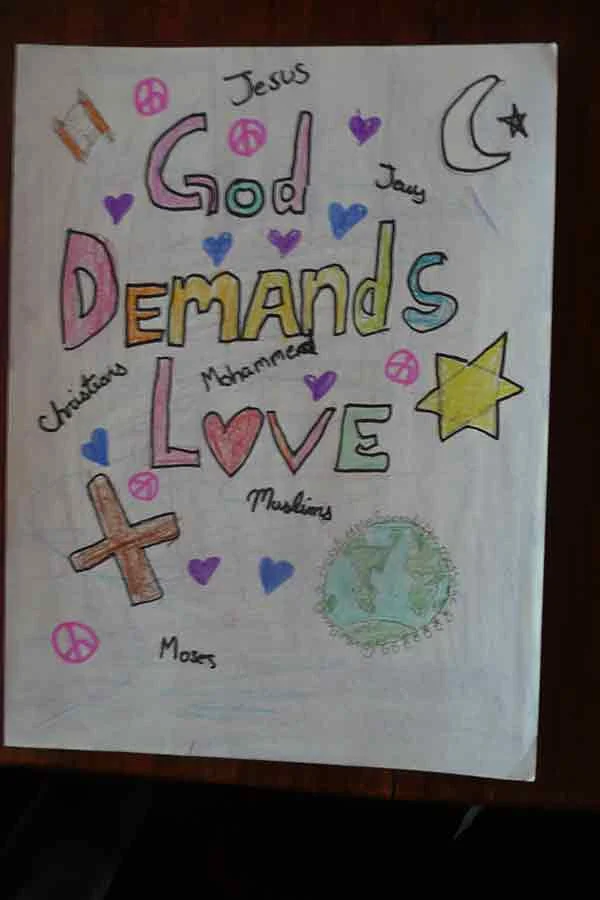 Jesus
God
Jews
DEMANdS
Mohammed
Christians
LOVE
Muslims
Moses